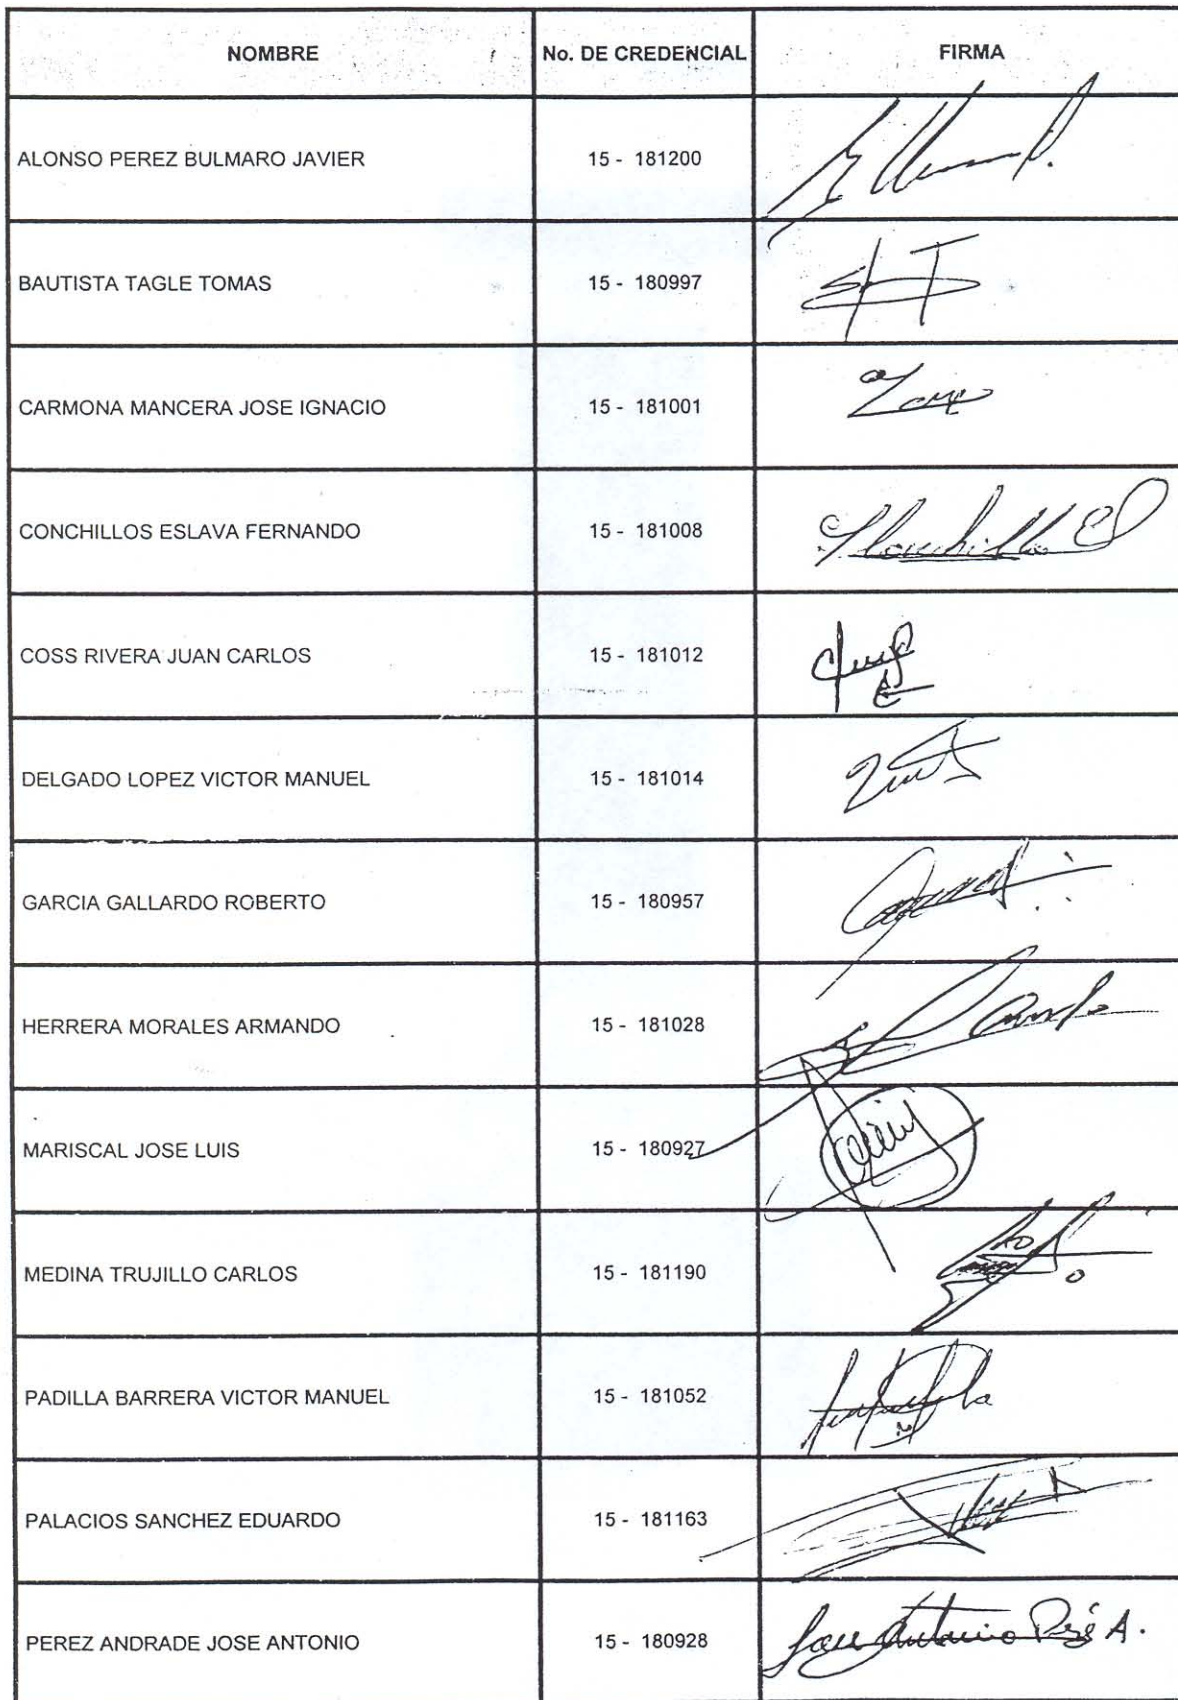 NOMBRE No. DE CREDENCIAL FIRMA
ALONSO PEREZ BULMARO JAVIER 15 - 181200
BAUTISTA TAGLE TOMAS 15 - 180997
CARMONA MANCERA JOSE IGNACIO 15 - 181001
CONCHILLOS ESLAVA FERNANDO 15 - 181008
COSS RIVERA JUAN CARLOS 15 - 181012
DELGADO LOPEZ VICTOR MANUEL 15 - 181014
GARCIA GALLARDO ROBERTO 15 - 180957
HERRERA MORALES ARMANDO 15 - 181028
MARISCAL JOSE LUIS 15 - 180927
MEDINA TRUJILLO CARLOS 15 - 181190
PADILLA BARRERA VICTOR MANUEL 15 - 181052
PALACIOS SANCHEZ EDUARDO 15 - 181163
PEREZ ANDRADE JOSE ANTONIO 15 - 180928 Jose Antonio A.